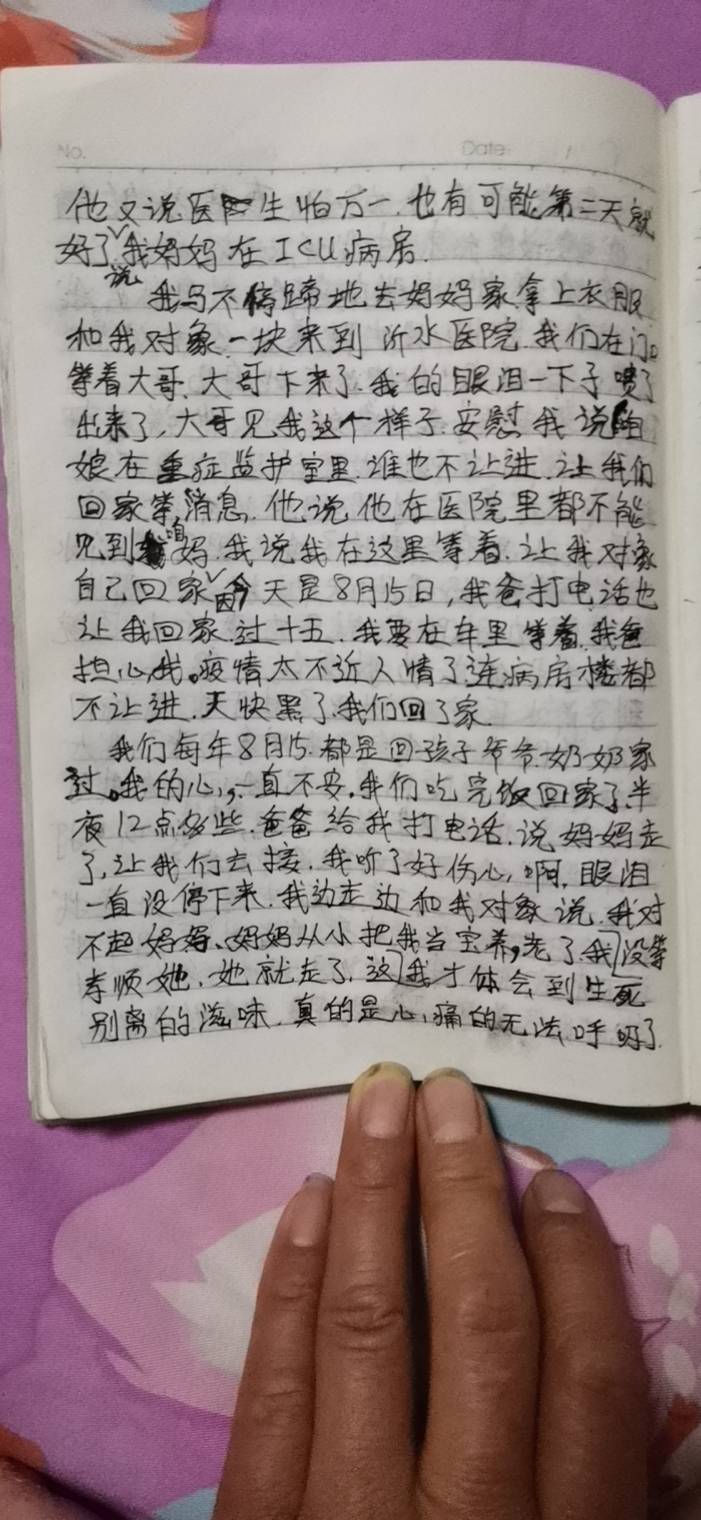 No.
Date:
他又说医生怕万一.也有可能第二天就
好了说我妈妈在ICU病房.
我马不停蹄地去妈妈家拿上衣服
和我对象一块来到沂水医院.我们在门口
等着大哥.大哥下来了.我的眼泪一下子喷了
出来了,大哥见我这个样子.安慰我说咱
娘在重症监护室里.谁也不让进.让我们
回家等消息.他说他在医院里都不能
见到咱妈.我说我在这里等着.让我对象
自己回家因今天是8月15日,我爸打电话也
让我回家过十五.我要在车里等着.我爸
担心我。疫情太不近人情了连病房楼都
不让进.天快黑了.我们回了家.
我们每年8月15.都是回孩子爷爷.奶奶家
过。我的心,一直不安.我们吃完饭回家了.半
夜12点多些.爸爸给我打电话.说妈妈走
了,让我们去接.我听了好伤心,啊.眼泪
一直没停下来.我边走边和我对象说.我对
不起妈妈、妈妈从小把我当宝养,老了我[没等
孝顺她、她就走了.这]我才体会到生死
别离的滋味.真的是心,痛的无法呼吸了.